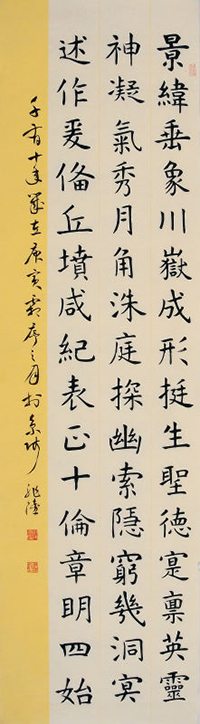 景緯垂象川嶽成形挺生聖德寔禀英靈
神凝氣秀月角洙庭探幽索隱窮幾洞冥
述作爰備丘墳咸紀表正十倫章明四始
千有十年歲在庚寅霜序之月於京